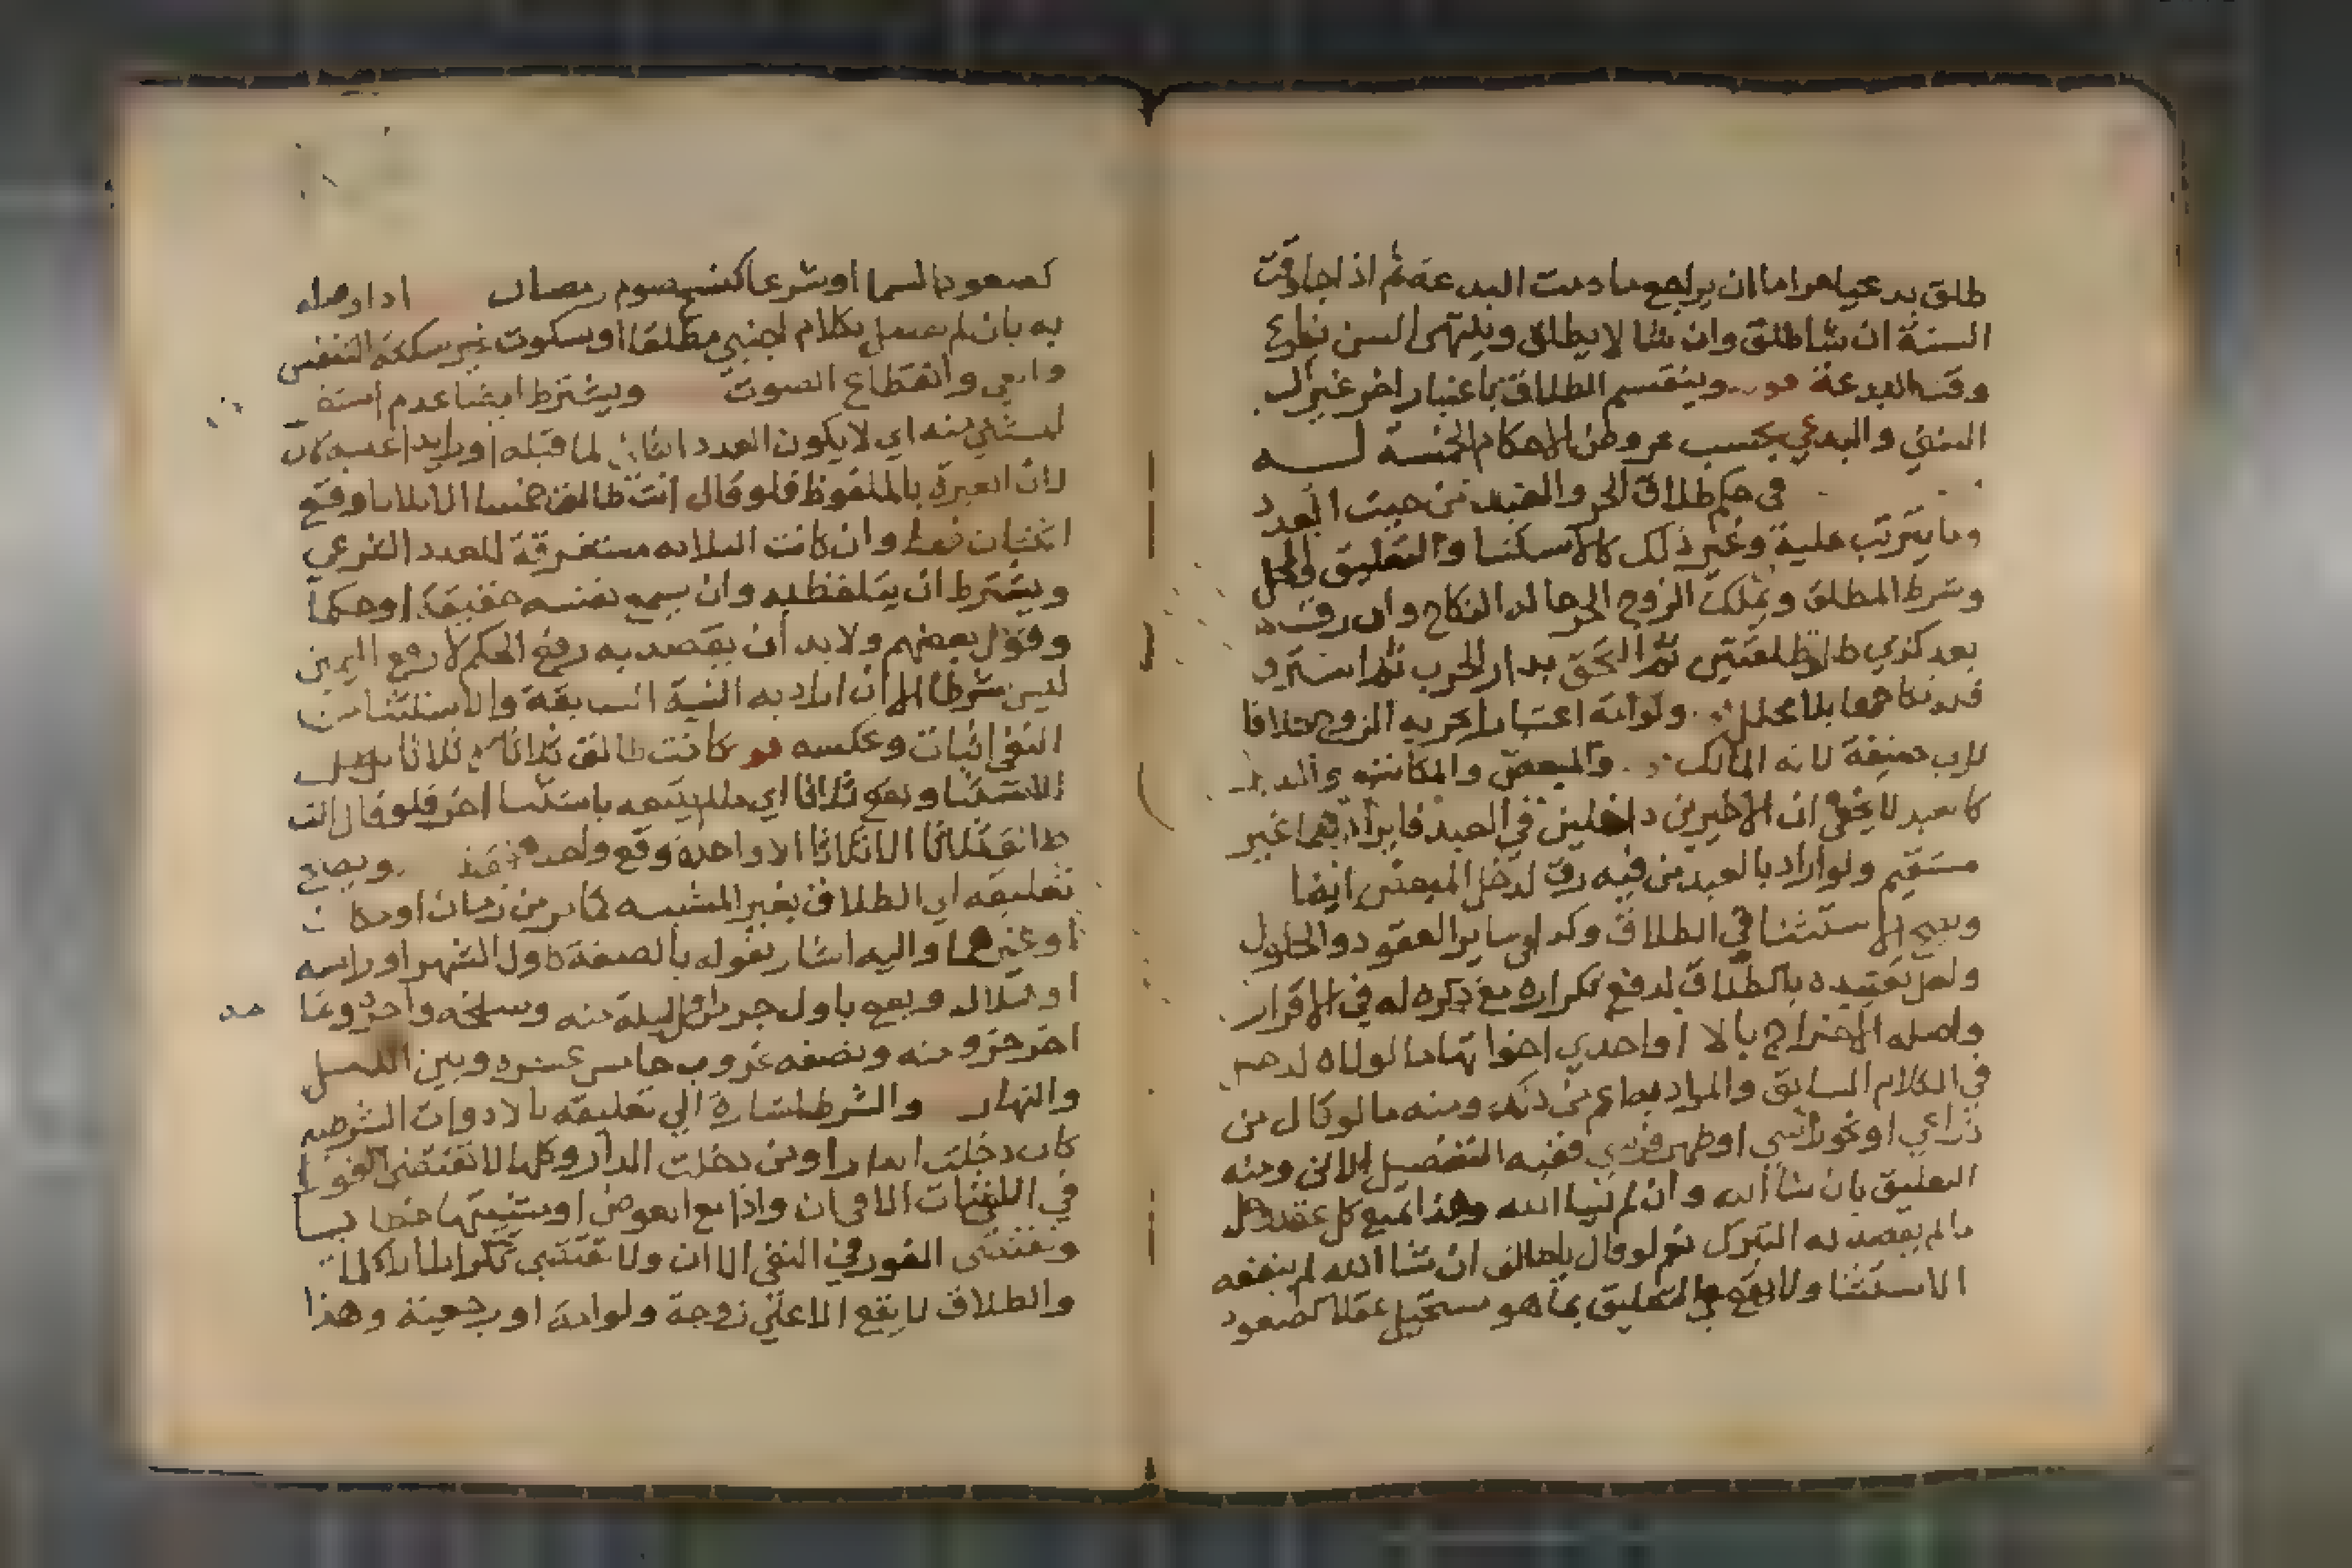 طلق بدعيا مراما ان يراجع مادمت البدعة ثم اذا جا وقت
السنة ان شا طلق وان شا لا يطلق وينتهى السن بفراغ
وقت البدعة وينقسم الطلاق باعتبار اخر غير
السني والبدعي بحسب عروض الاحكام الخمسة له
في حكم طلاق الحر والعبد من حيث العدد
وما يترتب عليه وغير ذلك كالاستثنا والتعليق والمحل
وشرط المطلق ويملك الزوج الحر حالة النكاح وان رق
بعد كذمي طلق طلقتين ثم التحق بدار الحرب ثم استرق
فله نكاحها بلا محلل ولو امة اعتبارا بحرية الزوج خلافا
لابي حنيفة لانه المالك والمبعض والمكاتب والمدبر
كالعبد لا يخفى ان الاخيرين داخلين في العبد فايرادهما غير
مستقيم ولو اراد بالعبد من فيه رق لدخل المبعض ايضا
ويصح الاستثنا في الطلاق وكذا في ساير العقود والحلول
ولعل تقييده بالطلاق لدفع تكراره مع ذكره له في الاقرار
واصله الاخراج بالا او احدي اخواتها ما لولاه لدخل
في الكلام السابق والمراد بما اعم من ذلك ومنه ما لو قال من
ذراعي او نحو راسي او ظهر فرسي ففيه التفصيل الاتي ومنه
التعليق بان شا الله وان لم يشا الله وهذا يمنع كل عقد وحل
ما لم يقصد به التبرك نعم لو قال يا طالق ان شا الله لم ينفعه
الاستثنا ولا يقع في التعليق بما هو مستحيل عقلا كصعود
كصعود السما او شرعا كنسخ صوم رمضان اذا وصله
به بان لم يفصل بكلام اجنبي مطلقا او سكوت غير سكتة التنفس
والعي وانقطاع الصوت ويشترط ايضا عدم استغراق
المستثني منه اي لا يكون العدد الثاني لما قبله او زايدا عليه
لان العبرة بالملفوظ فلو قال انت طالق خمسا الا ثلاثا وقع
اثنتان فقط وان كانت الثلاثه مستغرقة للعدد الشرعي
ويشترط ان يتلفظ به وان يسمع نفسه حقيقة او حكما
وقول بعضهم ولا بد ان يقصد به رفع الحكم لا رفع اليمين
ليس شرطا الا ان اراد به النية السابقة والاستثنا من
النفي اثبات وعكسه كانت طالق ثلاثا ثلاثا بطل
الاستثنا ويقع ثلاثا اي ما لم يتبعه باستثنا اخر فلو قال انت
طالق ثلاثا الا ثلاثا الا واحدة وقع واحدة فقط ويصح
تعليقه اي الطلاق بغير المشيه كما مر من زمان او مكان
او غيرهما واليه اشار بقوله بالصفة كاول الشهر او راسه
او هلال ويقع باول جزء من اول ليلة منه وسلخه واخره وقع
اخر جزو منه ونصفه غروب خامس عشره وبين الليل
والنهار والشرط اشارة الي تعليقه بالادوات الشرطيه
كان دخلت الدار او من دخلت الدار وكلها لا تقتضي الفور
في الاثبات الا في ان واذا مع العوض او مشيتها خطابا
وتقتضي الفور في النفي الا ان ولا تقتضي تكرارا الا كلما
والطلاق لا يقع الا علي زوجة ولو امة او رجعية وهذا